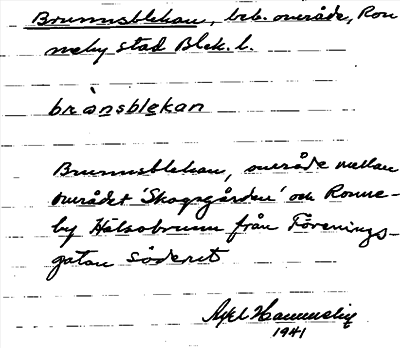 Brunnsblekan, beb. område, Ron
neby stad Blek. l.
brànsblekan
Brunnsblekan, område mellan
området 'Skogsgården' och Ronne-
by Hälsobrunn från Förenings-
gatan söderut
Axel
1941